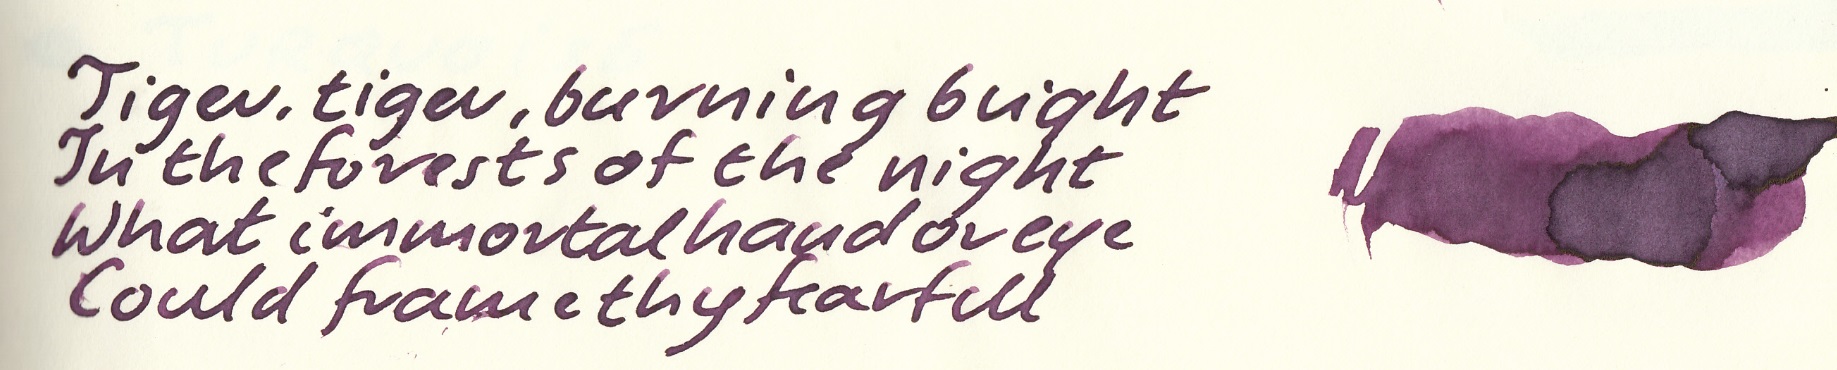 Tiger. tiger, burning bright
In the forests of the night
What immortal hand or eye
Could frame thy fearfull